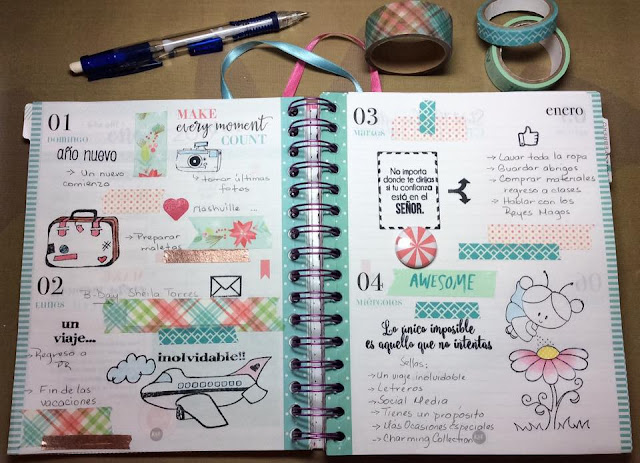 01
DOMINGO
año nuevo
→ Un nuevo
comienzo
MAKE
every moment
COUNT
→ tomar últimas
fotos
Nashville ...
→ Preparar
maletas
02
LUNES
B-Day Sheila Torres
un
viaje...
→ Regreso a
PR
→ Fin de las
vacaciones
inolvidable!!
03
MARTES
enero
No importa
donde te dirijas
si tu confianza
está en el
SEÑOR.
→ Lavar toda la ropa
→ Guardar abrigos
→ Comprar materiales
regreso a clases
→ Hablar con los
Reyes Magos
04
MIÉRCOLES
AWESOME
Lo único imposible
es aquello que no intentas
Sellos:
→ Un viaje inolvidable
→ Letreros
→ Social Media
→ Tienes un propósito
→ Más Ocasiones especiales
→ Charming Collection